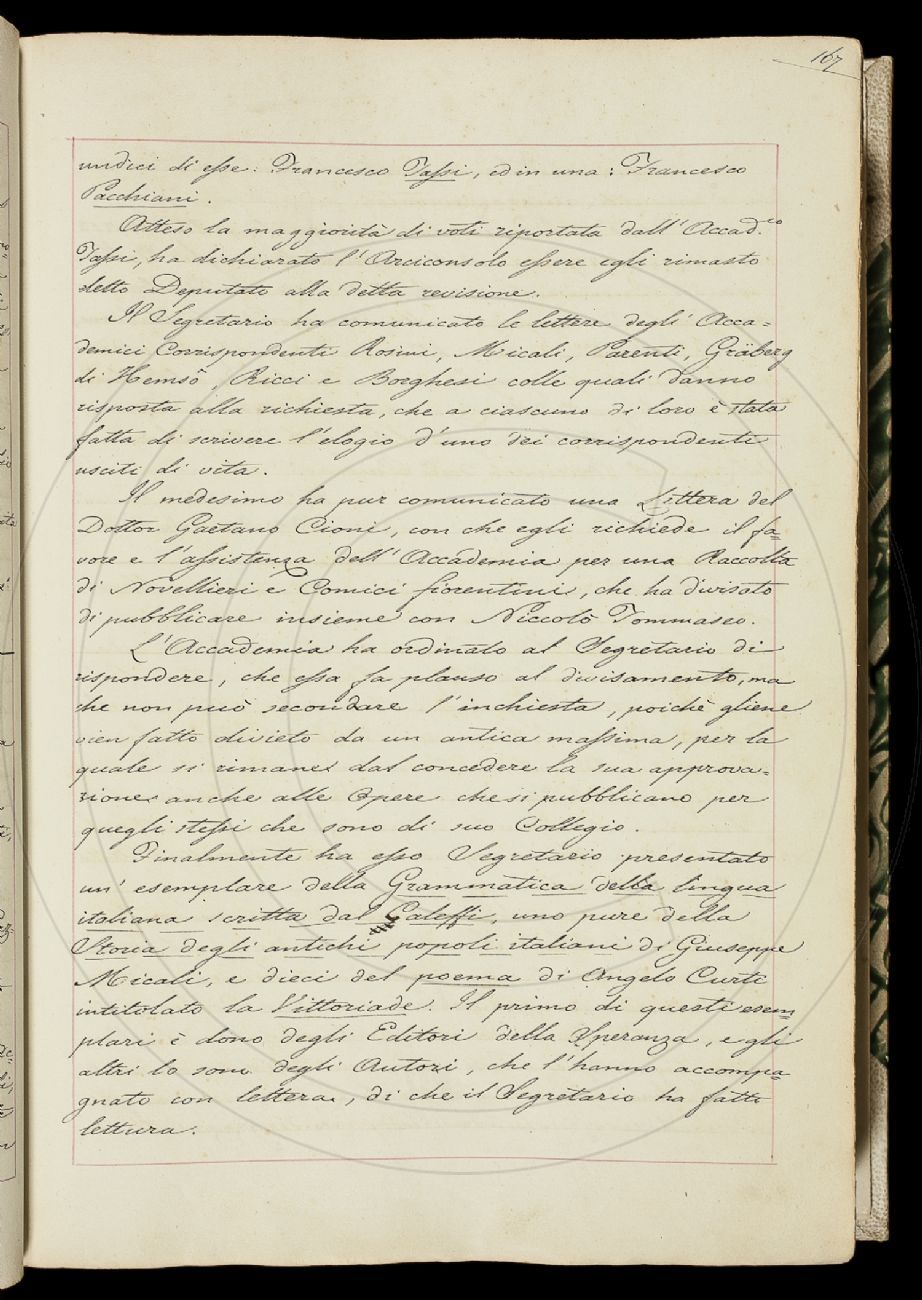 167
undici di esse: Francesco Tassi, ed in una: Francesco
Pacchiani.
Atteso la maggiorità di voti riportata dall'Accad.co
Tassi, ha dichiarato l'Arciconsolo essere egli rimasto
eletto Deputato alla detta revisione.
Il Segretario ha comunicato le lettere degli Acca=
demici Corrispondenti Rosini, Micali, Parenti, Gräberg
di Hemsö, Ricci e Borghesi colle quali danno
risposta alla richiesta, che a ciascuno di loro è stata
fatta di scrivere l'elogio d'uno dei corrispondenti
usciti di vita.
Il medesimo ha pur comunicato una Lettera del
Dottor Gaetano Cioni, con che egli richiede il fa=
vore e l'assistenza dell'Accademia per una Raccolta
di Novellieri e Comici fiorentini, che ha divisato
di pubblicare insieme con Niccolò Tommaseo.
L'Accademia ha ordinato al Segretario di
rispondere, che essa fa plauso al divisamento, ma
che non può secondare l'inchiesta, poichè gliene
vien fatto divieto da un antica massima, per la
quale si rimane dal concedere la sua approva=
zione anche alle Opere che si pubblicano per
quegli stessi che sono di suo Collegio.
Finalmente ha esso Segretario presentato
un' esemplare della Grammatica della lingua
italiana scritta dal Caleffi, uno pure della
Storia degli antichi popoli italiani di Giuseppe
Micali, e dieci del poema di Angelo Curti
intitolato la Vittoriade. Il primo di questi esem=
plari è dono degli Editori della Speranza, e gli
altri lo sono degli Autori, che l'hanno accompa=
gnato con lettera, di che il Segretario ha fatto
lettura.